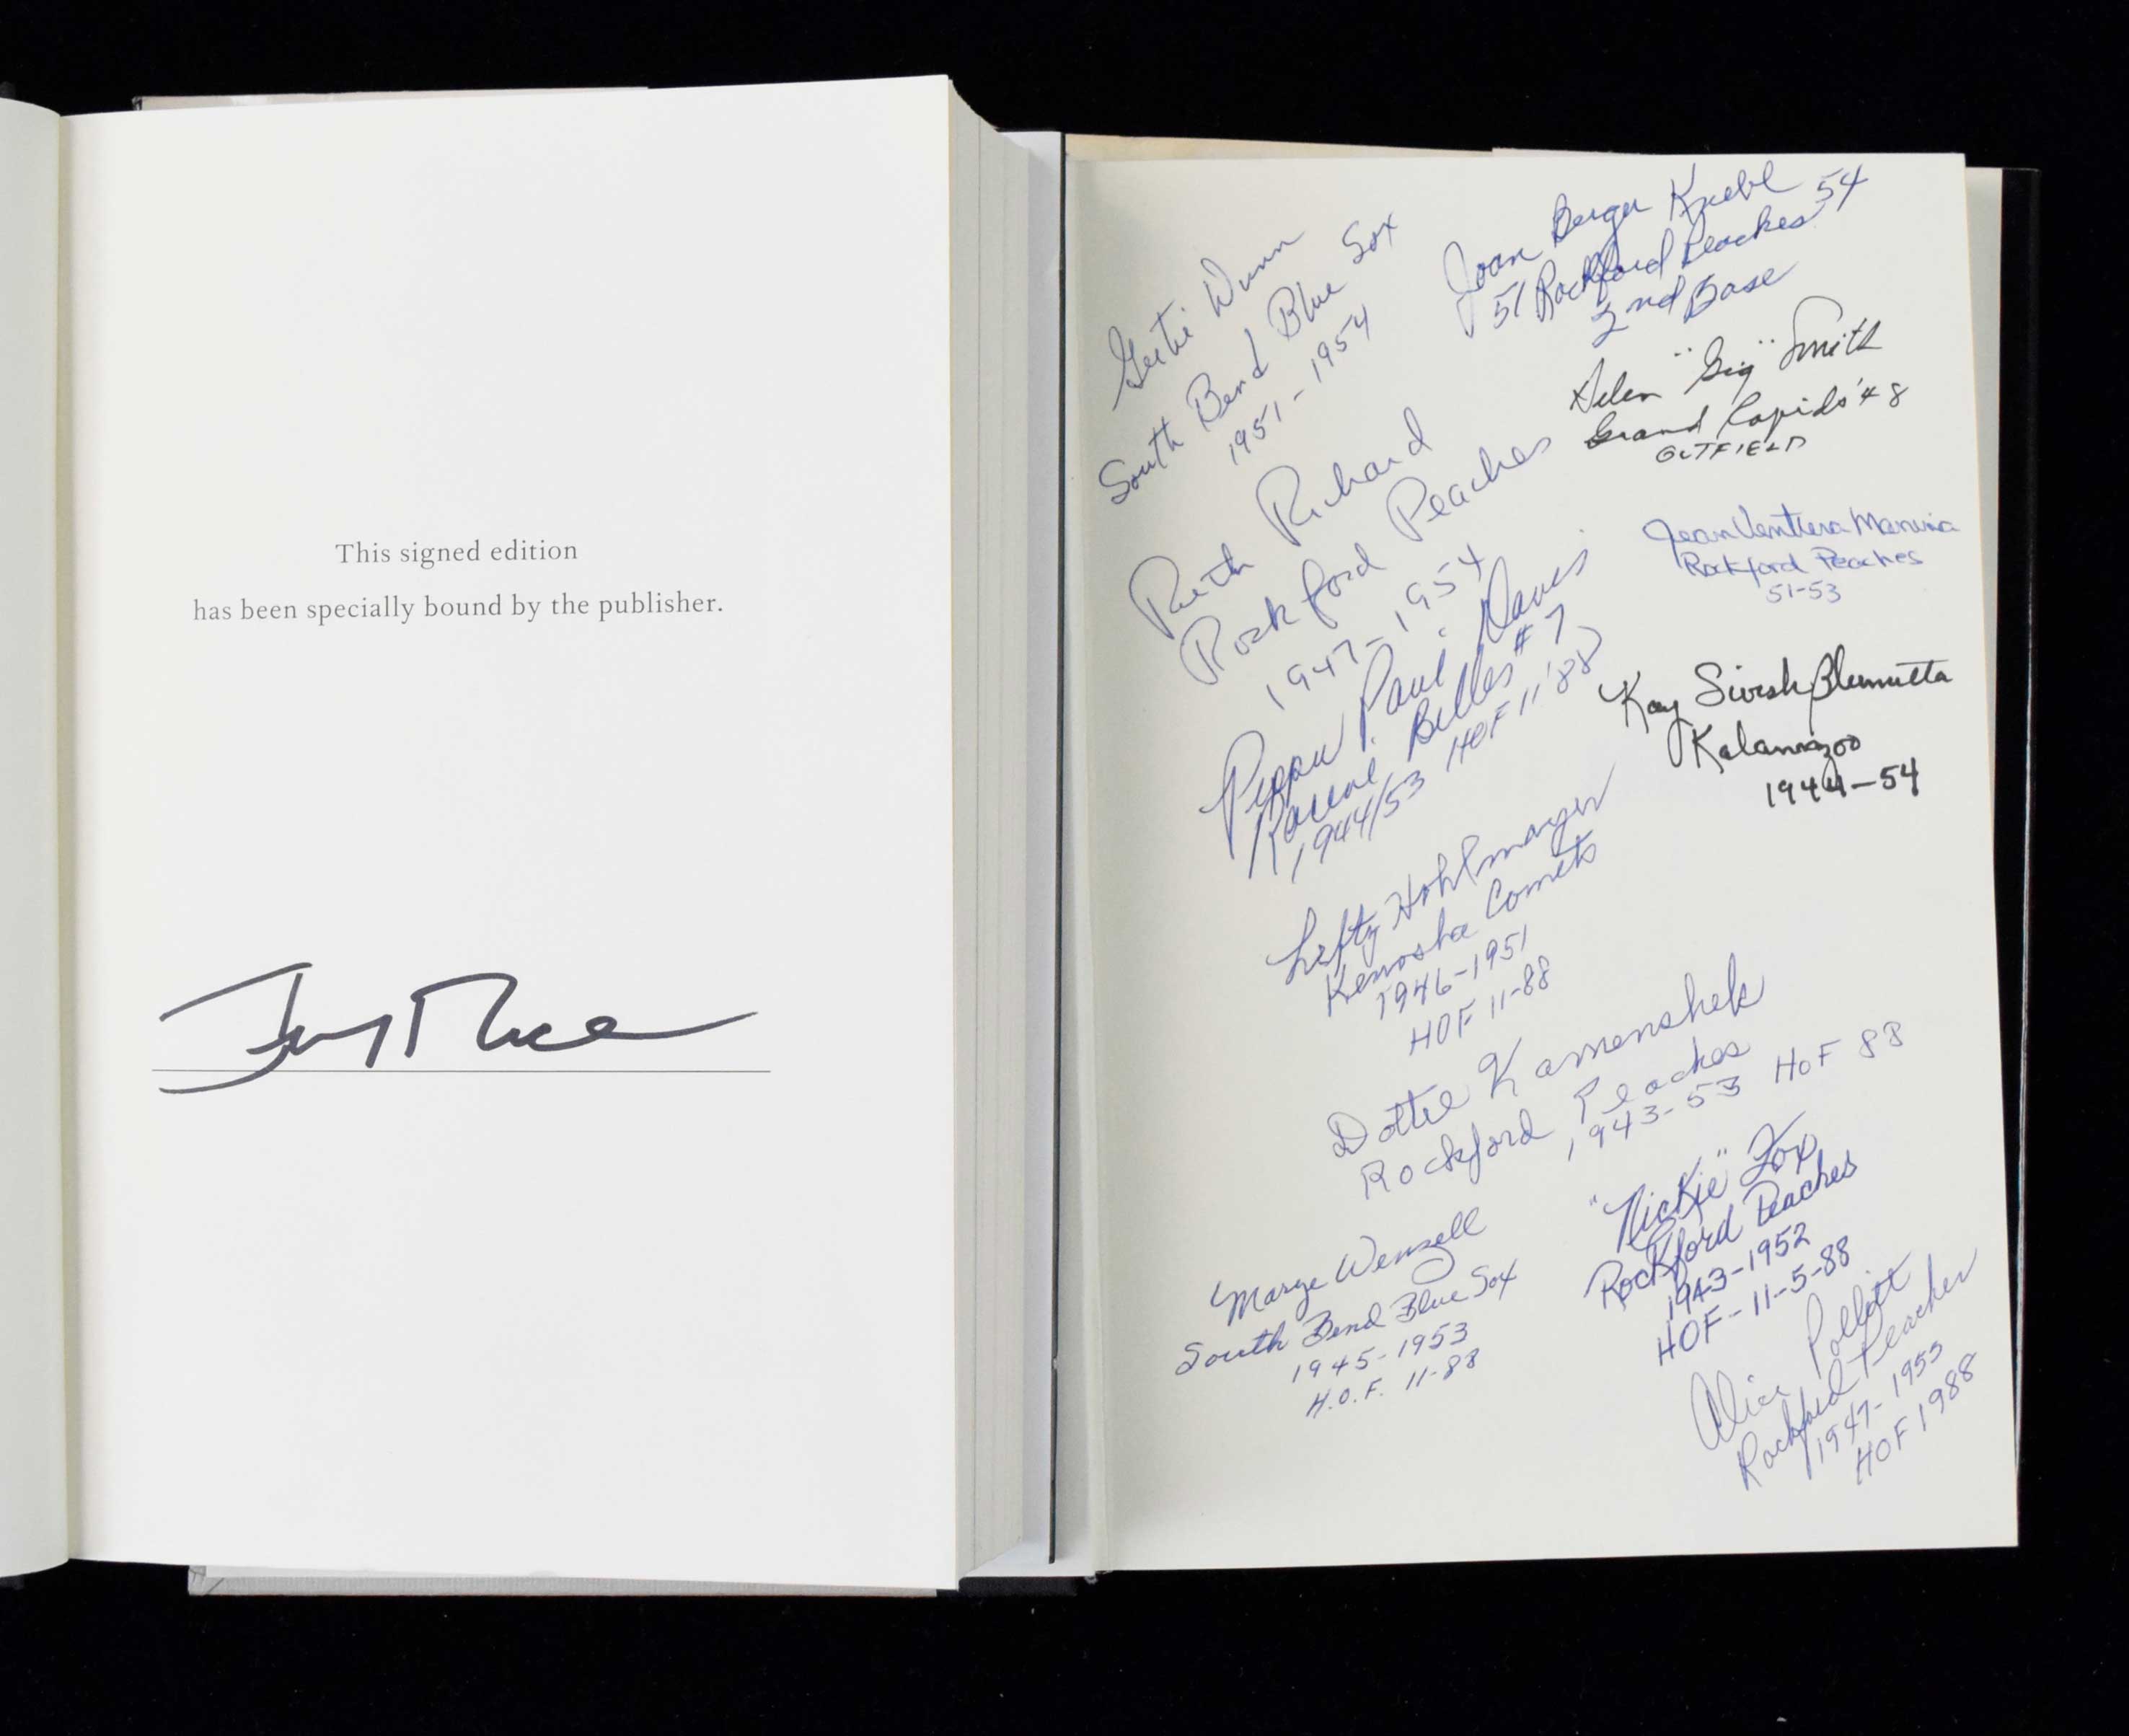 This signed edition
has been specially bound by the publisher.
Gertie Dunn
South Bend Blue Sox
1951-1954
Joan Berger Knebl
51 Rockford Peaches 54
2nd Base
Helen "Gig" Smith
Grand Rapids '48
OUTFIELD
Ruth Richard
Rockford Peaches
1947-1954
Jean Ventura Manina
Rockford Peaches
51-53
Pepper Paire Davis
Racine Belles #7
1944/53 HOF 11'88
Kay Blumetta
Kalamazoo
1944-54
Lefty Hohlmayer
Kenosha Comets
1946-1951
HOF 11-88
Dottie Kamenshek
Rockford Peaches
1943-53 HoF 88
"Nickie" Fox
Rockford Peaches
1943-1952
HOF-11-5-88
Marge Wenzell
South Bend Blue Sox
1945-1953
H.O.F. 11-88
Alice Pollitt
Rockford Peaches
1947-1953
HOF 1988